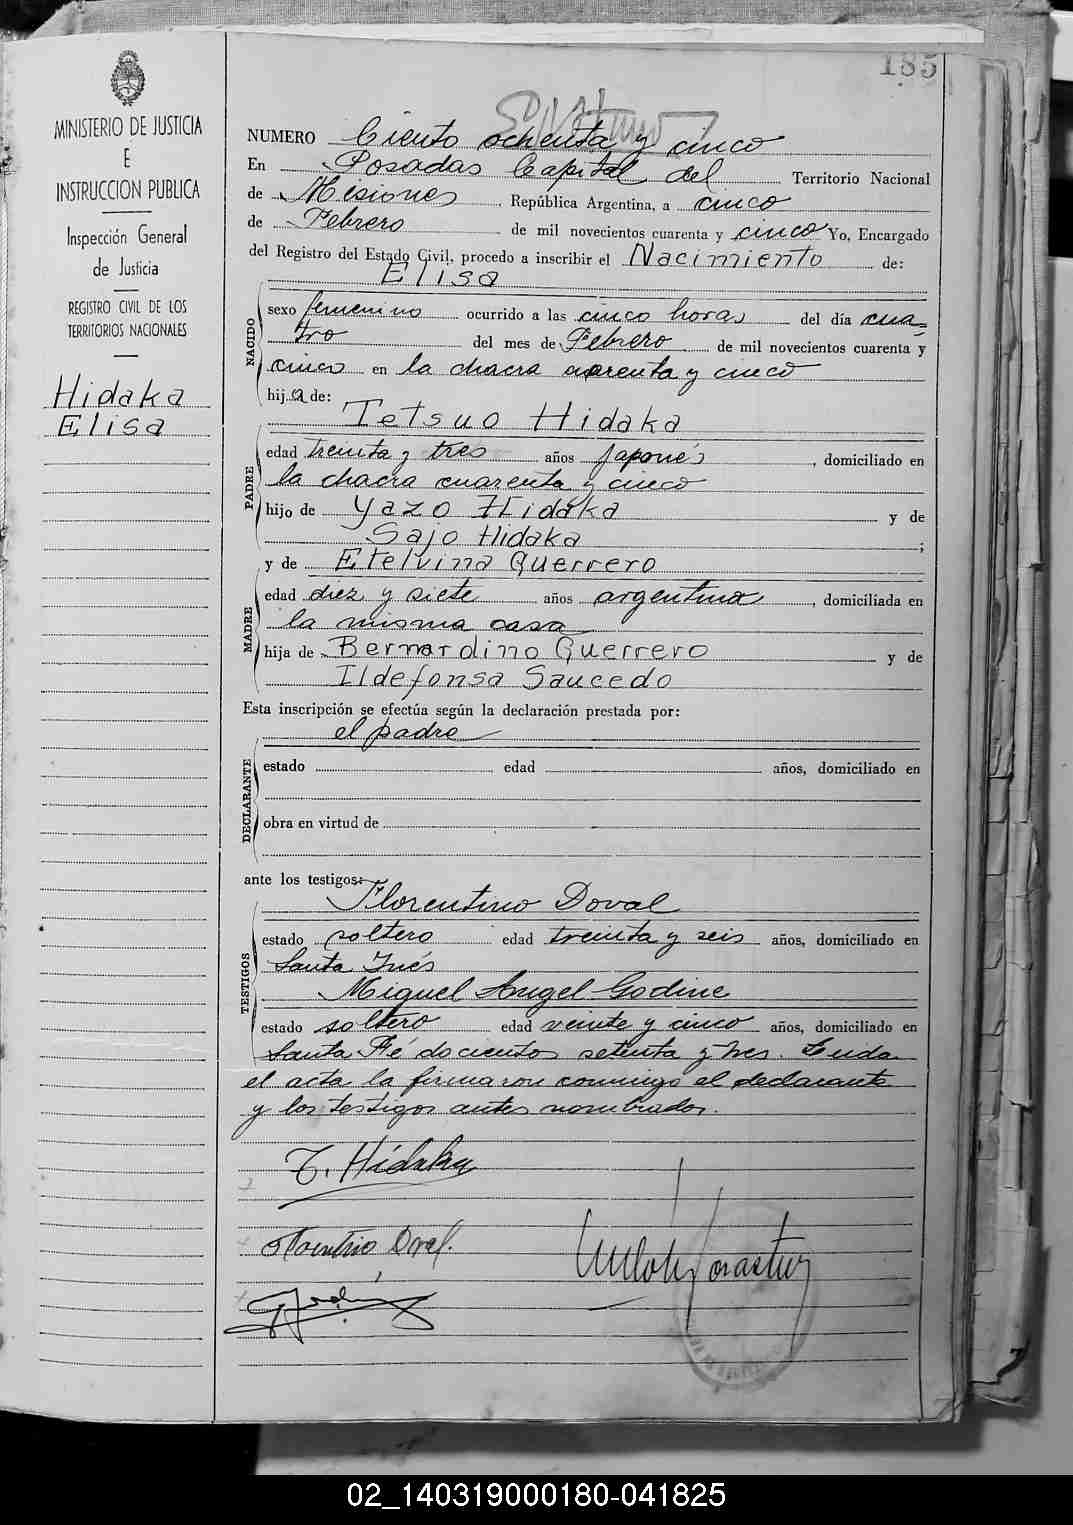 185
MINISTERIO DE JUSTICIA
E
INSTRUCCION PUBLICA
Inspección General
de Justicia
REGISTRO CIVIL DE LOS
TERRITORIOS NACIONALES
Hidaka
Elisa
NUMERO Ciento ochenta y cinco
En Posadas Capital del Territorio Nacional
de Misiones, República Argentina, a cinco
de Febrero de mil novecientos cuarenta y cinco Yo, Encargado
del Registro del Estado Civil, procedo a inscribir el Nacimiento de:
Elisa
NACIDO
sexo femenino ocurrido a las cinco horas del día cua=
tro del mes de Febrero de mil novecientos cuarenta y
cinco en la chacra cuarenta y cinco
hija de:
Tetsuo Hidaka
PADRE
edad treinta y tres años japonés, domiciliado en
la chacra cuarenta y cinco
hijo de Yazo Hidaka y de
Sajo Hidaka;
y de Etelvina Guerrero
MADRE
edad diez y siete años argentina, domiciliada en
la misma casa
hija de Bernardino Guerrero y de
Ildefonsa Saucedo
Esta inscripción se efectúa según la declaración prestada por:
el padre
DECLARANTE
estado edad años, domiciliado en
obra en virtud de
ante los testigos:
Florentino Doval
TESTIGOS
estado soltero edad treinta y seis años, domiciliado en
Santa Inés
Miguel Angel Godine
estado soltero edad veinte y cinco años, domiciliado en
Santa Fé docientos setenta y tres. Leida
el acta la firmaron conmigo el declarante
y los testigos antes nombrados.
T. Hidaka
02_140319000180-041825